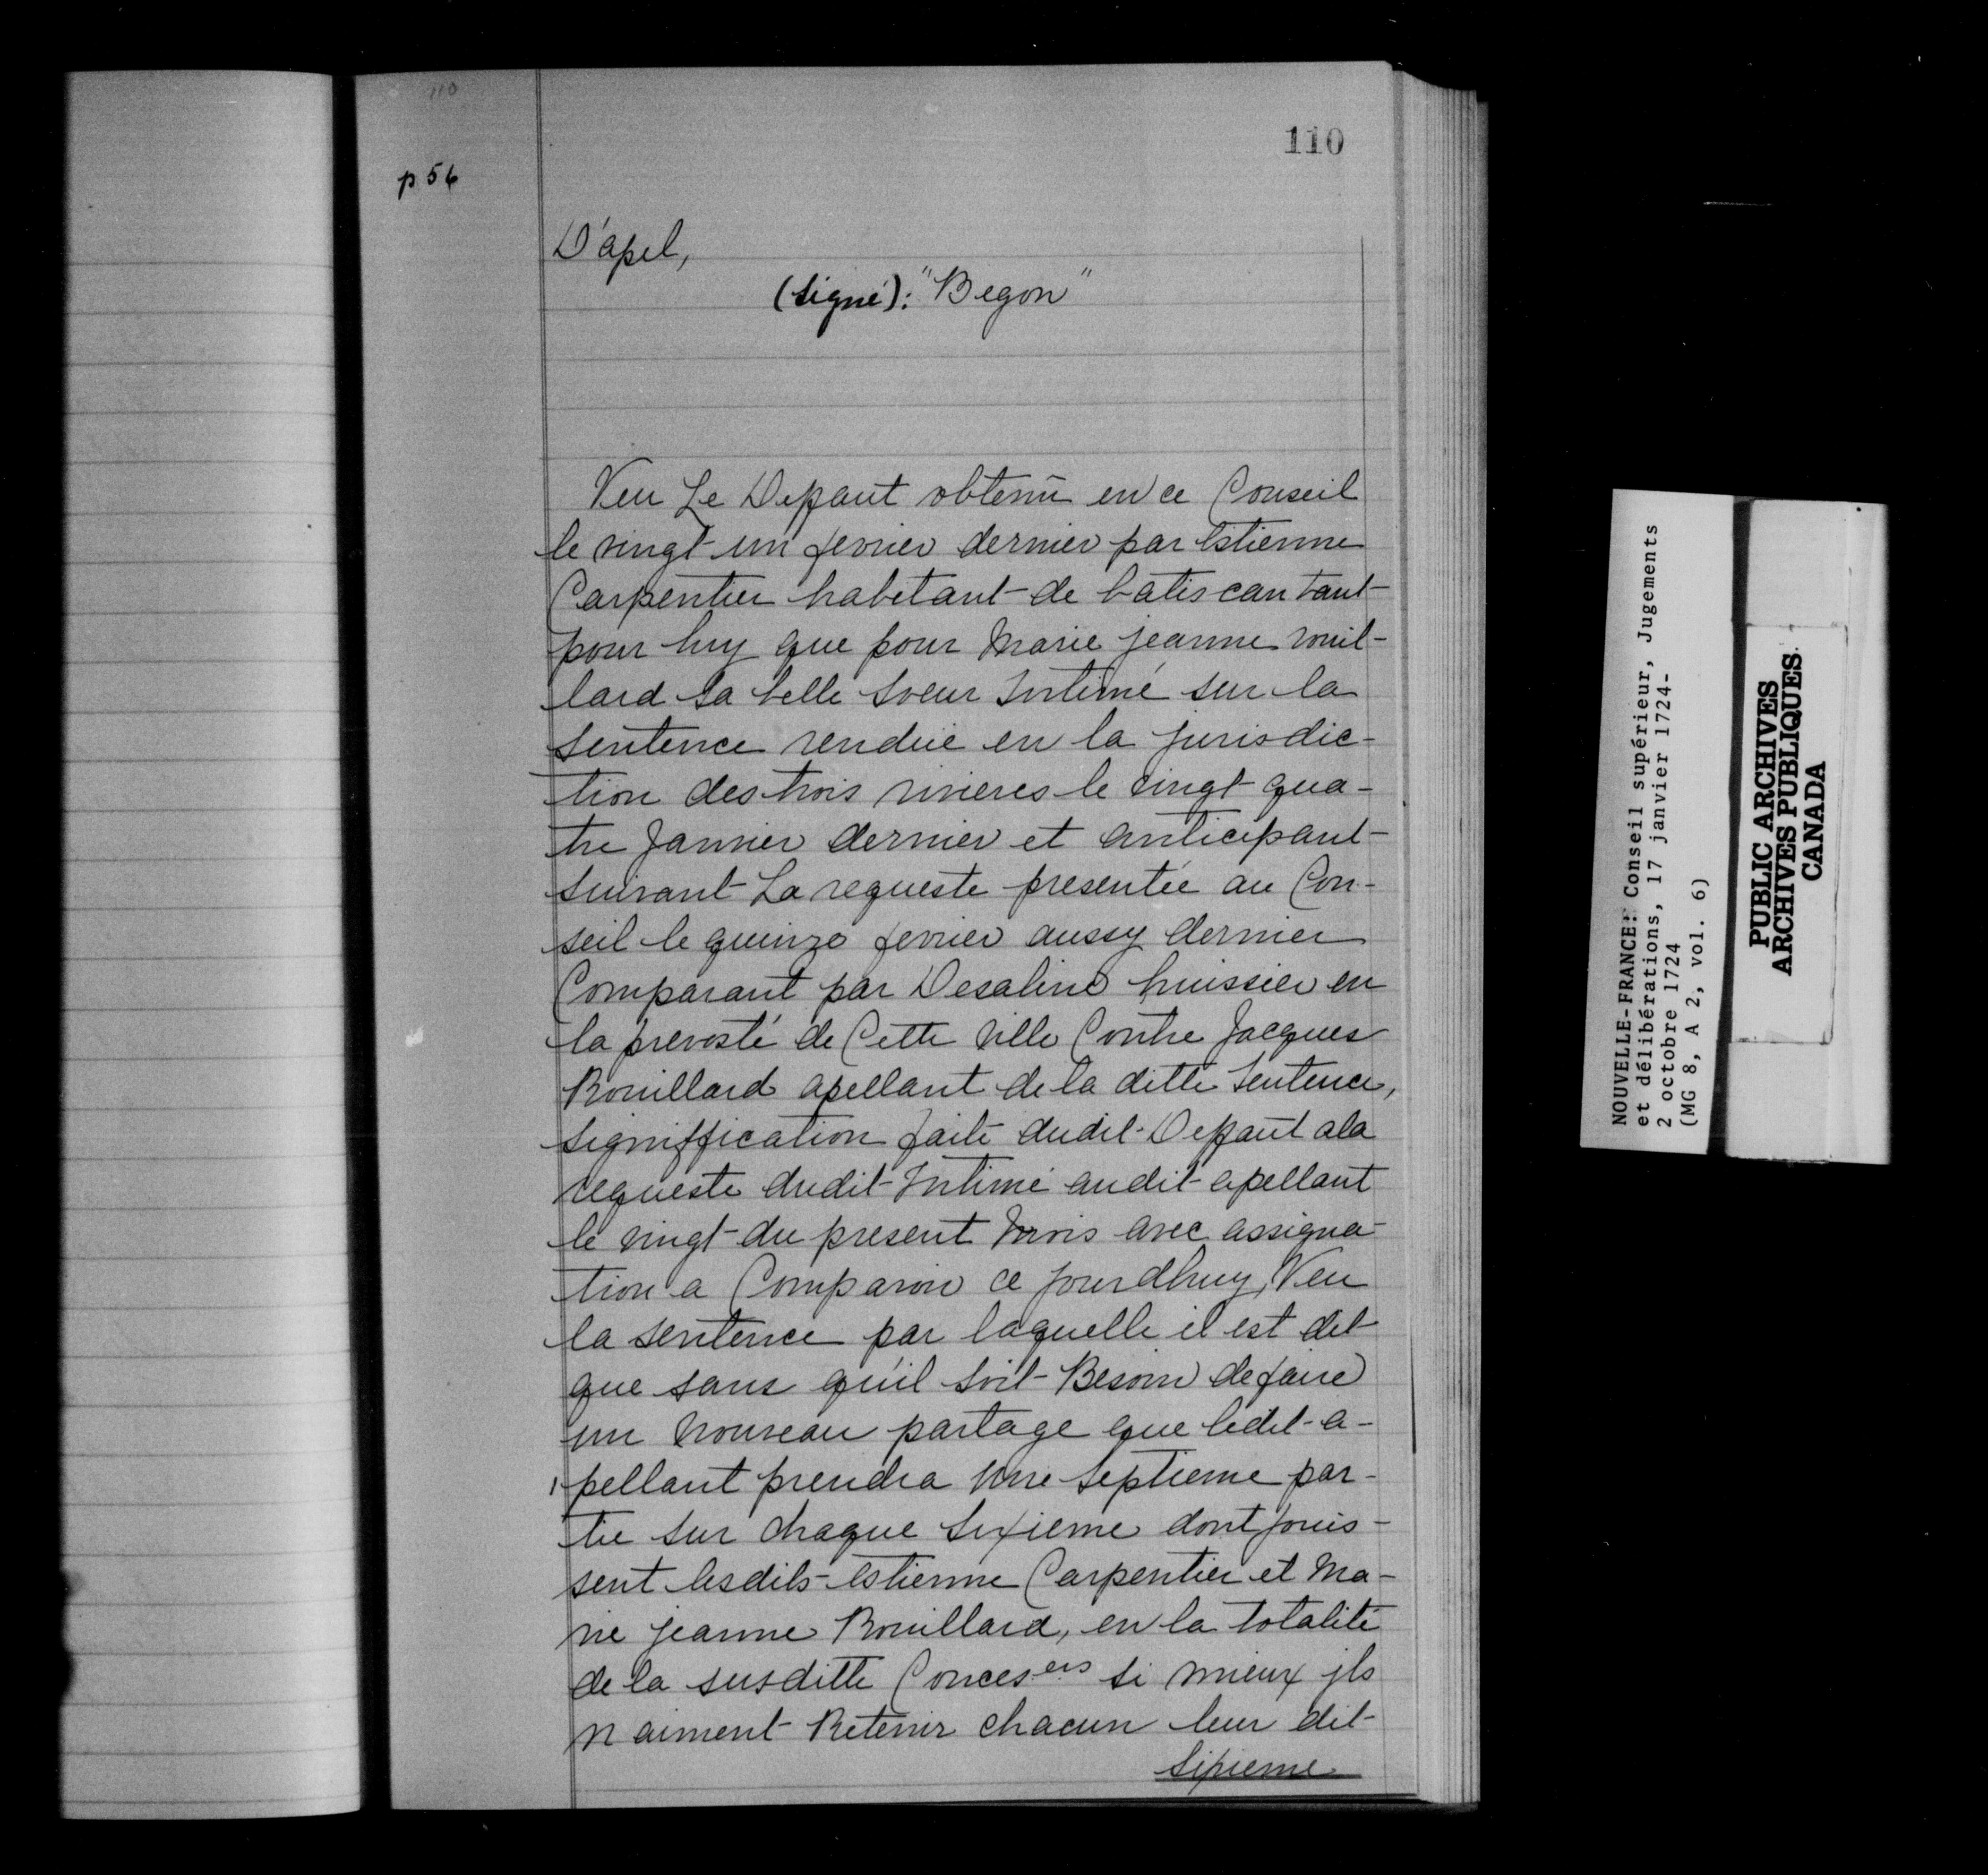 110
110
p 56
D'apel,
(Signé): "Begon"
Veu Le Deffaut obtenu en ce Conseil
le vingt un fevrier dernier par Estienne
Carpentier habitant de batiscan tant
pour luy que pour Marie jeanne rouil-
lard sa belle soeur Intimé sur la
sentence rendüe en la jurisdic-
tion des trois rivieres le vingt qua-
tre Janvier dernier et anticipant
suivant La requeste presentée au Con-
seil le quinze fevrier aussy dernier
Comparant par Desaline huissier en
la prevosté de Cette ville Contre Jacques
Rouillard apellant de la ditte Sentence,
signiffication faite dudit Deffaut a la
requeste dudit Intimé audit apellant
le vingt du present mois avec assigna-
tion a Comparoir ce jourdhuy, Veu
la sentence par laquelle il est dit
que sans qu'il soit Besoin de faire
un nouveau partage que ledit a-
pellant prendra une septieme par-
tie sur chaque sixieme dont jouis-
sent lesdits Estienne Carpentier et Ma-
rie jeanne Rouillard, en la totalité
de la susditte Conces.ers si mieux jls
n aiment Retenir chacun leur dit
sixieme
NOUVELLE-FRANCE: Conseil supérieur, Jugements
et délibérations, 17 janvier 1724-
2 octobre 1724
(MG 8, A 2, vol. 6)
PUBLIC ARCHIVES
ARCHIVES PUBLIQUES
CANADA